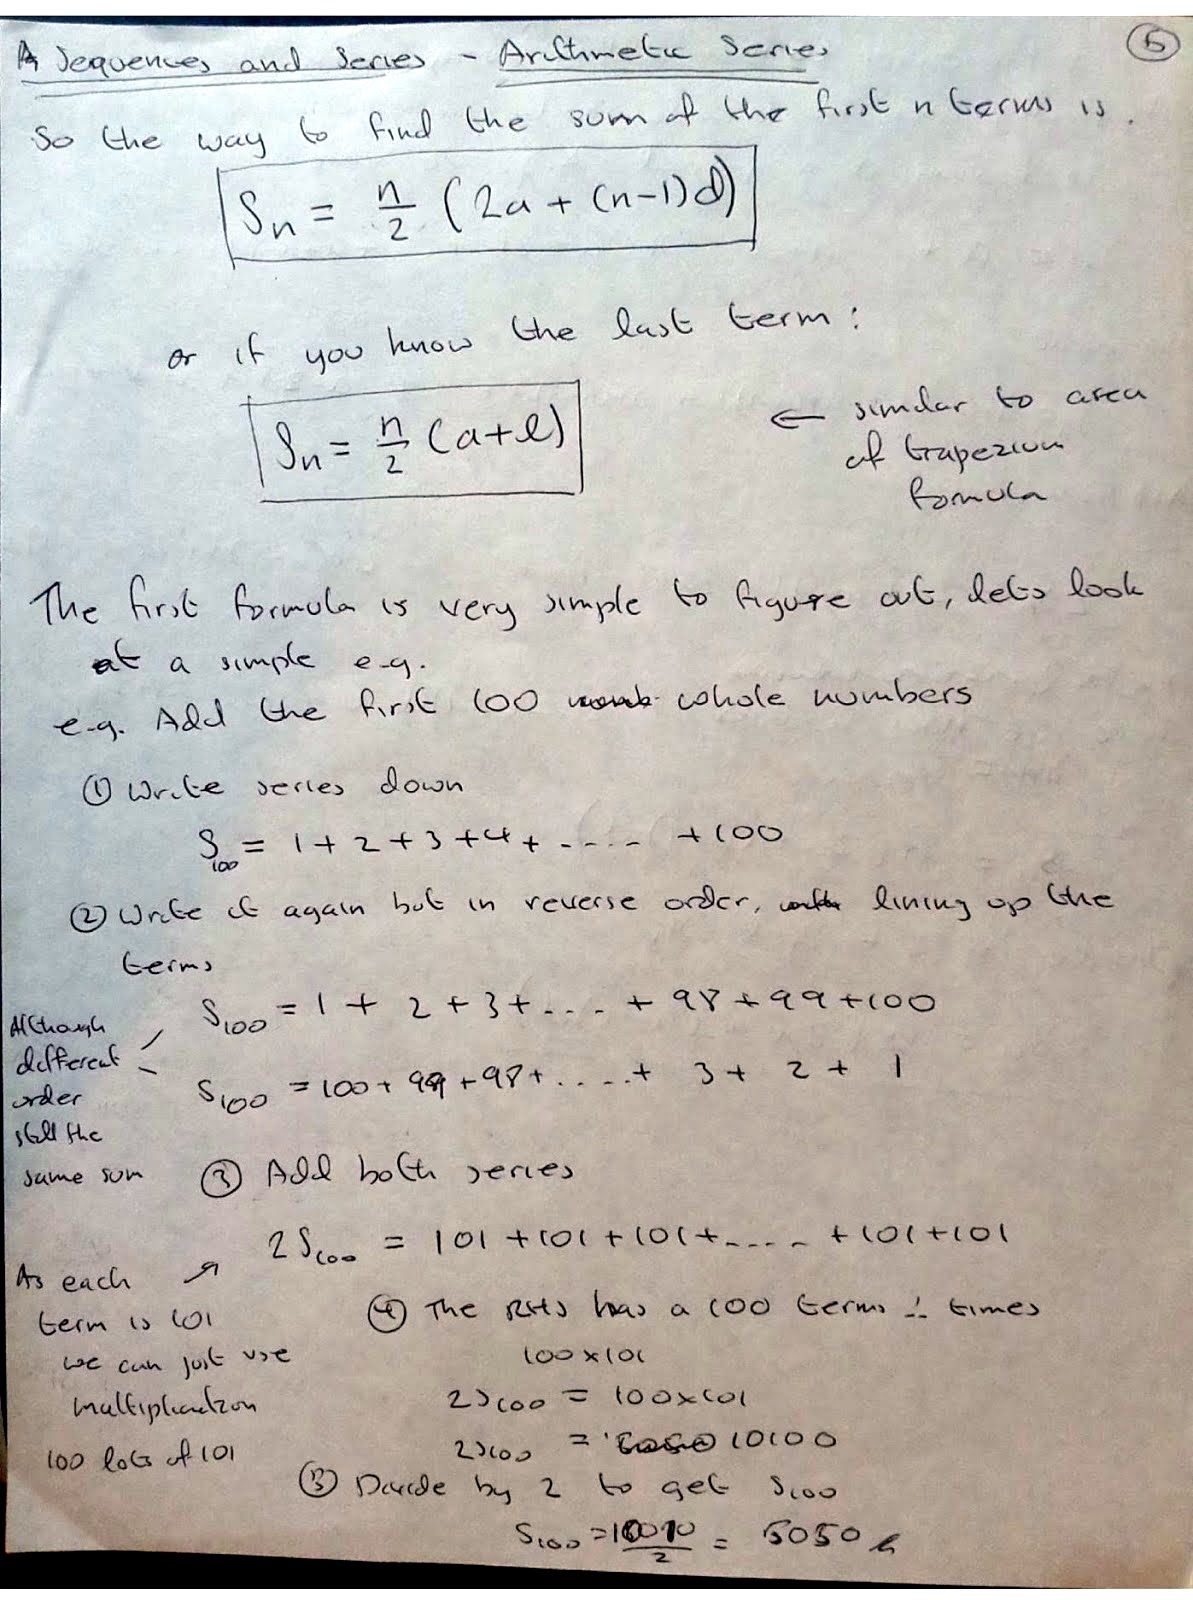 5
Sequences and Series - Arithmetic Series
So the way to find the sum of the first n terms is.
Sn = n/2 (2a + (n-1)d)
or if you know the last term:
Sn = n/2 (a+l)
← similar to area
of trapezium
formula
The first formula is very simple to figure out, lets look
at a simple e.g.
e.g. Add the first 100 whole numbers
① Write series down
S100 = 1 + 2 + 3 + 4 + ..... + 100
② Write it again but in reverse order, lining up the
terms
S100 = 1 + 2 + 3 + .... + 98 + 99 + 100
S100 = 100 + 99 + 98 + ..... + 3 + 2 + 1
Although
different
order
still the
same sum
③ Add both series
2S100 = 101 + 101 + 101 + ..... + 101 + 101
As each
term is 101
we can just use
multiplication
100 lots of 101
④ The RHS has a 100 terms ∴ times
100 x 101
2S100 = 100 x 101
2S100 = 10100
⑤ Divide by 2 to get S100
S100 = /2 = 5050